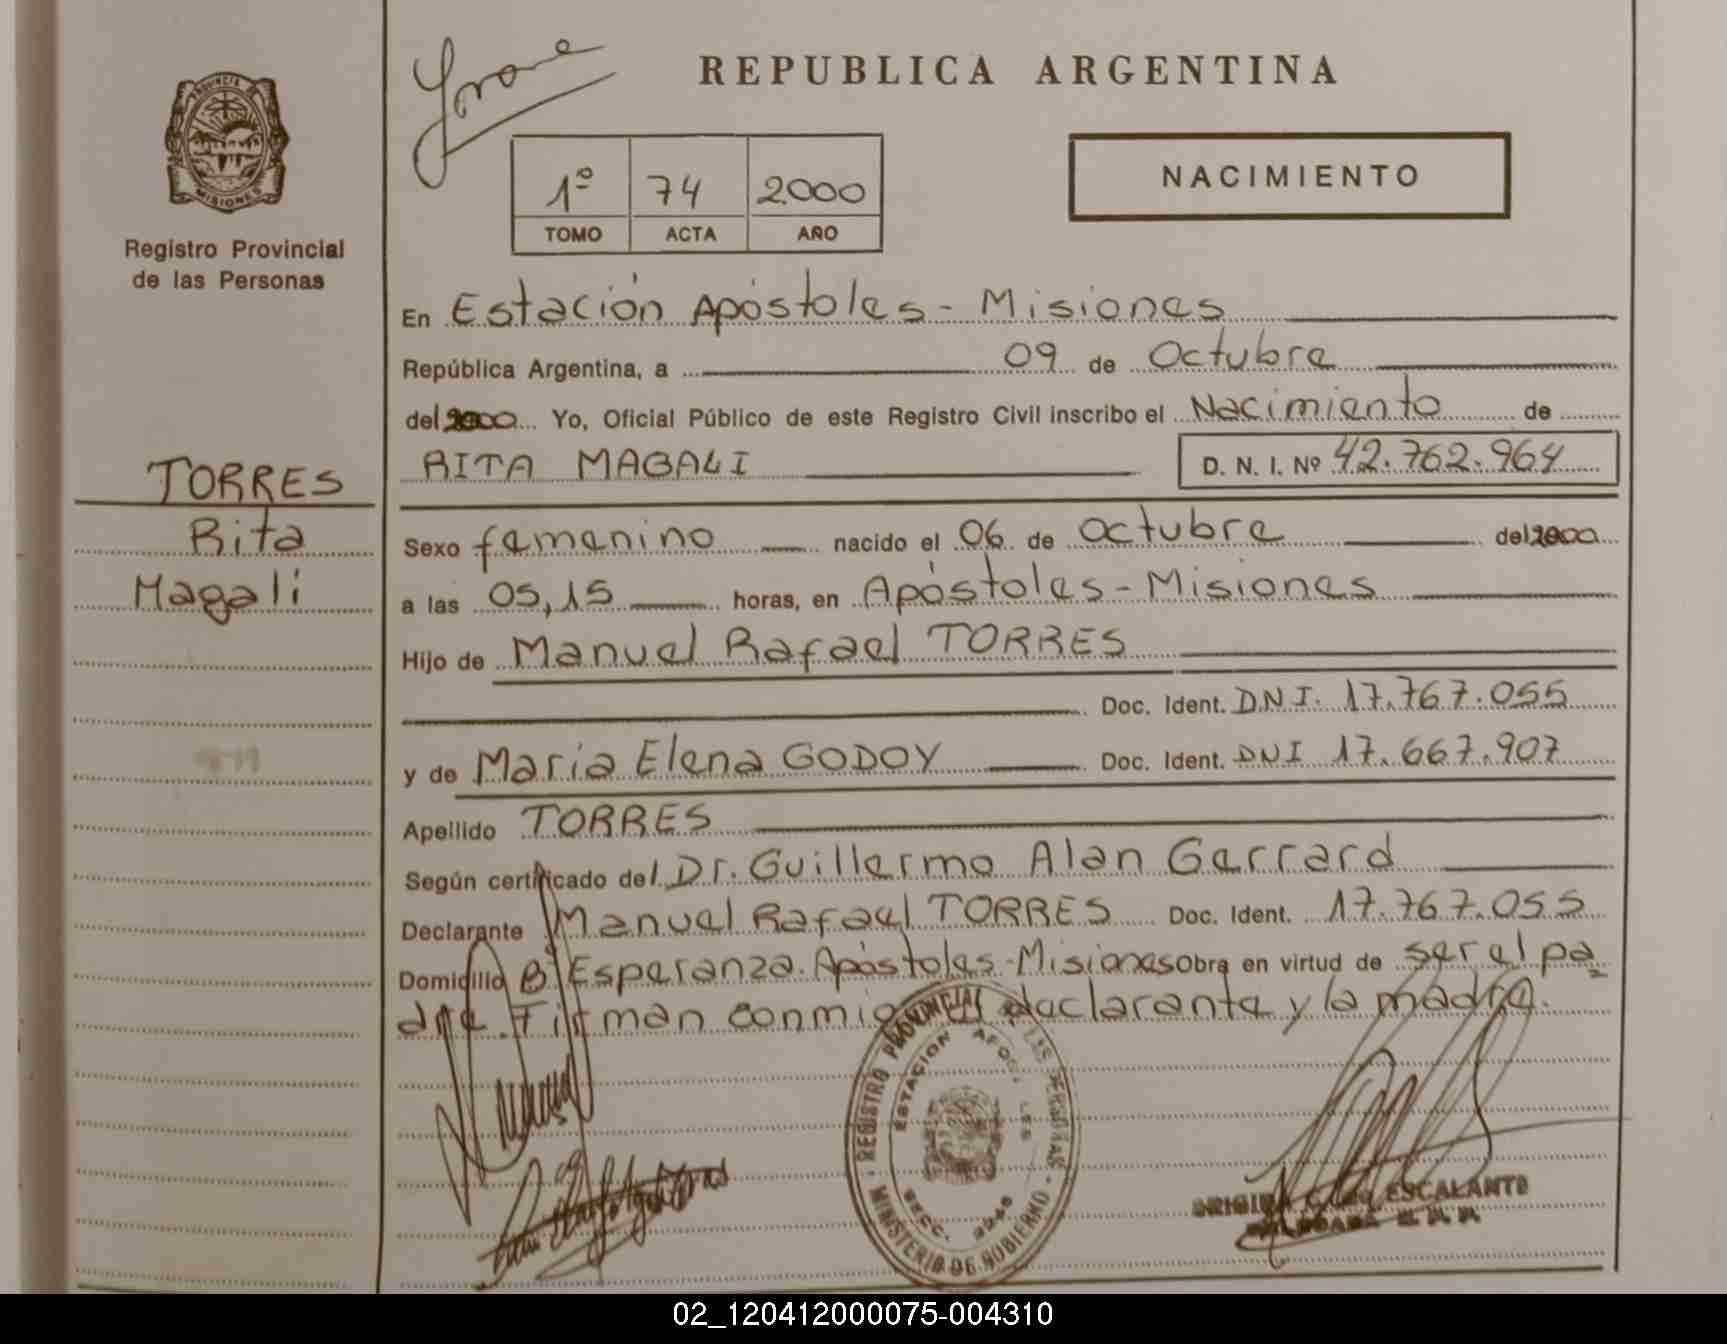 REPUBLICA ARGENTINA
PROVINCIA
MISIONES
Registro Provincial
de las Personas
1º 74 2.000
TOMO ACTA AÑO
NACIMIENTO
En Estación Apóstoles - Misiones
República Argentina, a 09 de Octubre
del 2000 Yo, Oficial Público de este Registro Civil inscribo el Nacimiento de
RITA MAGALI D. N. I. Nº 42.762.964
TORRES
Rita
Magali
Sexo femenino nacido el 06 de octubre del 2000
a las 05,15 horas, en Apóstoles - Misiones
Hijo de Manuel Rafael TORRES
Doc. Ident. DNI. 17.767.055
y de Maria Elena GODOY Doc. Ident. DNI 17.667.907
Apellido TORRES
Según certificado del Dr. Guillermo Alan Gerrard
Declarante Manuel Rafael TORRES Doc. Ident. 17.767.055
Domicilio Bº Esperanza. Apóstoles - Misiones Obra en virtud de ser el pa
dre. Firman conmigo el declarante y la madre.
REGISTRO PROVINCIAL DE LAS PERSONAS
ESTACION APOSTOLES
SECC.
MINISTERIO DE GOBIERNO
ESCALANTE
02_120412000075-004310